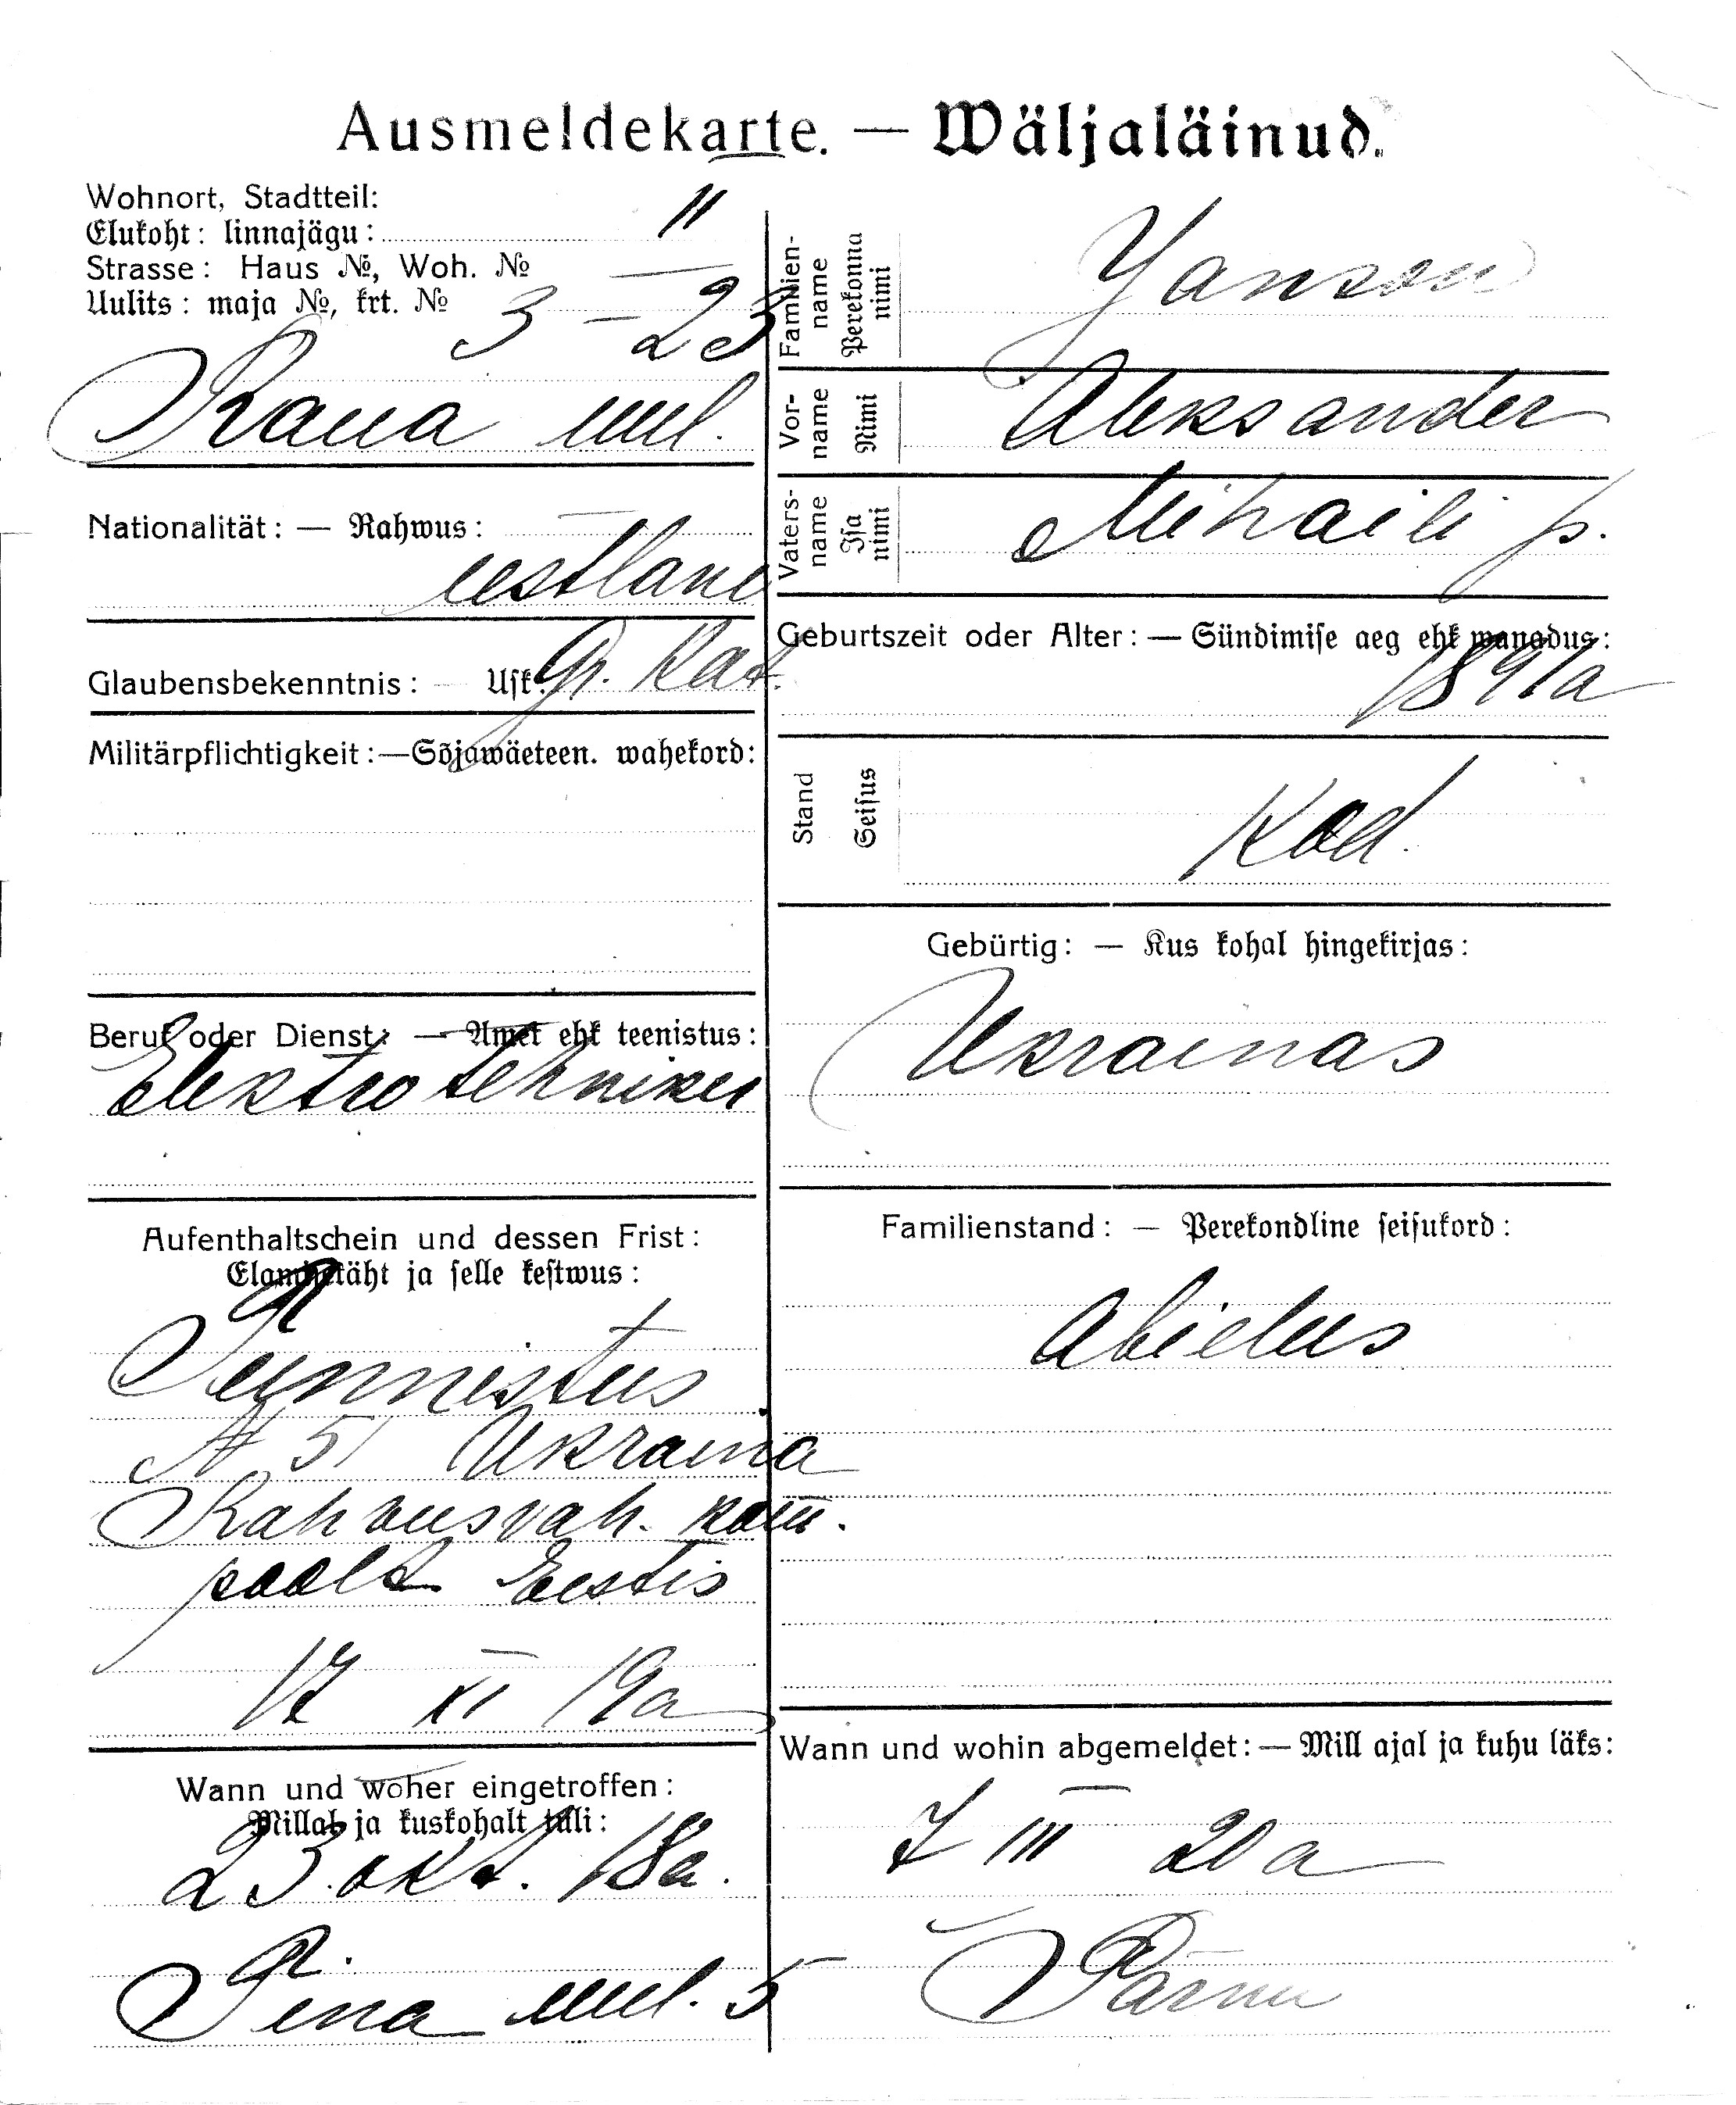 Ausmeldekarte. — Wäljaläinud.
Wohnort, Stadtteil:
Elukoht: linnajägu: II
Strasse: Haus №, Woh. №
Uulits: maja №, krt. № 3 – 23
Raua uul.
Nationalität: — Rahwus:
eestlane
Glaubensbekenntnis: Usk: Gr. Kat.
Militärpflichtigkeit: — Sõjawäeteen. wahekord:
Beruf oder Dienst: — Amet ehk teenistus:
Elektrotehniker
Aufenthaltschein und dessen Frist:
Elamisetäht ja selle kestwus:
Tunnistus
№ 51 Ukraina
Rahvusvah. kom.
poolt Eestis
17 XI 19a
Wann und woher eingetroffen:
Millal ja kuskohalt tuli:
23. okt. 18a.
Pena uul. 5
Familien-
name
Perekonna
nimi
Yanson
Vor-
name
Nimi
Aleksander
Vaters-
name
Isa
nimi
Mihaili p.
Geburtszeit oder Alter: — Sündimise aeg ehk wanadus:
1891a
Stand
Seisus
Kod.
Gebürtig: — Kus kohal hingekirjas:
Ukrainas
Familienstand: — Perekondline seisukord:
Abielus
Wann und wohin abgemeldet: — Mill ajal ja kuhu läks:
7 III 20a
Pärnu